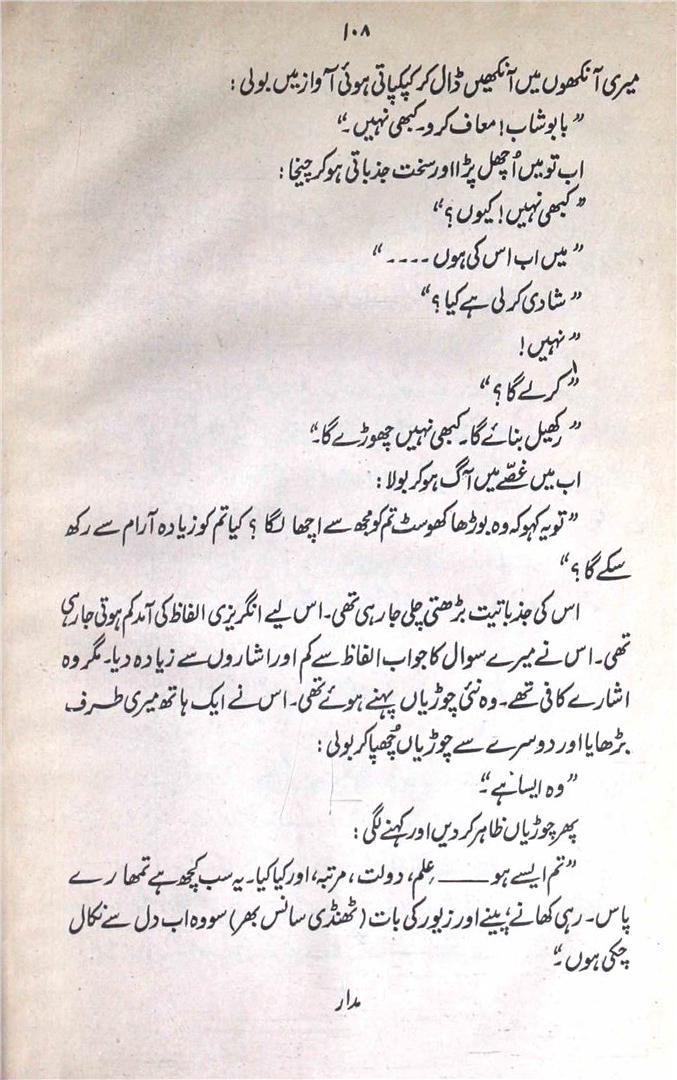 ۱۰۸
میری آنکھوں میں آنکھیں ڈال کر کپکپاتی ہوئی آواز میں بولی :
”بابو شاب! معاف کرو۔ کبھی نہیں۔“
اب تو میں اُچھل پڑا اور سخت جذباتی ہو کر چیخا :
”کبھی نہیں! کیوں؟“
”میں اب اس کی ہوں ۔۔۔۔“
”شادی کر لی ہے کیا؟“
”نہیں!
”کرلے گا؟“
”رکھیل بنائے گا۔ کبھی نہیں چھوڑے گا۔“
اب میں غصّے میں آگ ہو کر بولا :
”تو یہ کہو کہ وہ بوڑھا کھوسٹ تم کو مجھ سے اچھا لگا ؟ کیا تم کو زیادہ آرام سے رکھ
سکے گا؟“
اس کی جذباتیت بڑھتی چلی جا رہی تھی۔ اس لیے انگریزی الفاظ کی آمد کم ہوتی جا رہی
تھی۔ اس نے میرے سوال کا جواب الفاظ سے کم اور اشاروں سے زیادہ دیا۔ مگر وہ
اشارے کافی تھے۔ وہ نئی چوڑیاں پہنے ہوئے تھی۔ اس نے ایک ہاتھ میری طرف
بڑھایا اور دوسرے سے چوڑیاں چُھپا کر بولی :
”وہ ایسا ہے۔“
پھر چوڑیاں ظاہر کر دیں اور کہنے لگی :
”تم ایسے ہو ــــــ عِلم، دولت، مرتبہ، اور کیا کیا۔ یہ سب کچھ ہے تمھارے
پاس۔ رہی کھانے پینے اور زیور کی بات (ٹھنڈی سانس بھر) سو وہ اب دل سے نکال
چکی ہوں۔“
مدار